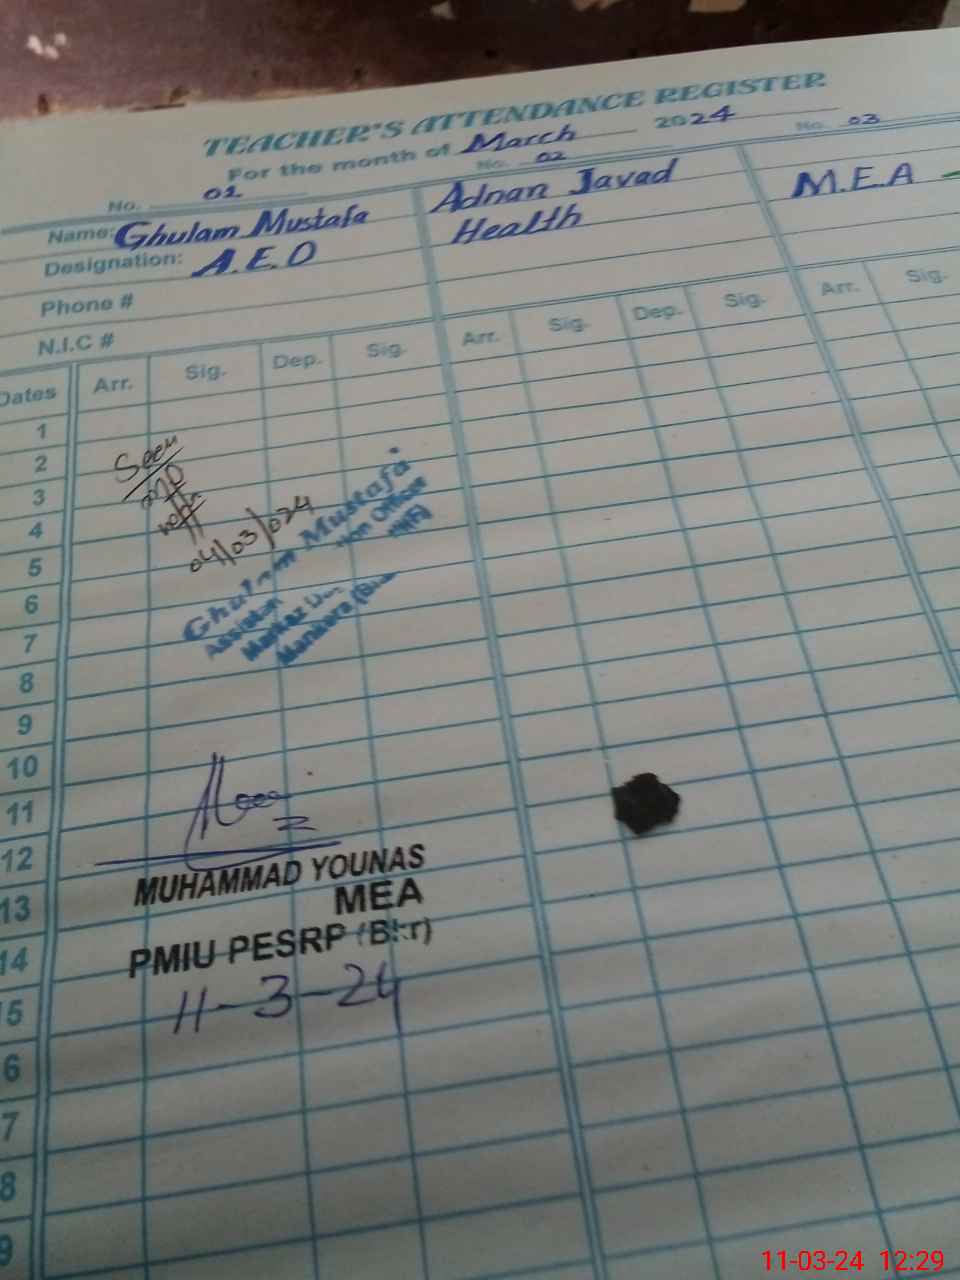 TEACHER'S ATTENDANCE REGISTER
For the month of March 2024
No. 01 No. 02 No. 03
Name: Ghulam Mustafa Adnan Javad M.E.A
Designation: A.E.O Health
Phone #
N.I.C #
Dates Arr. Sig. Dep. Sig. Arr. Sig. Dep. Sig. Arr. Sig.
1
2
Seen
3
4
04/03/024
5
6
7
8
9
10
11
12
13
14
5
6
7
8
9
Ghulam Mustafa
Officer
Markaz
Mankera
MUHAMMAD YOUNAS
MEA
PMIU PESRP (Bkr)
11-3-24
11-03-24 12:29